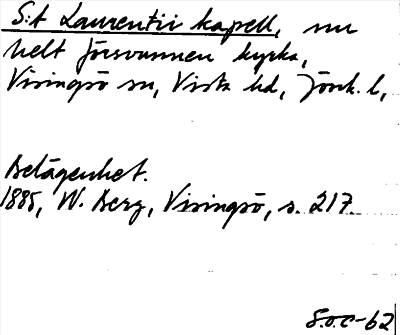 S:t Laurentii kapell, nu
helt försvunnen kyrka,
Visingsö sn, Vista hd, Jönk. l,
Belägenhet.
1885, W. Berg, Visingsö, s. 217.
S.O.C-62